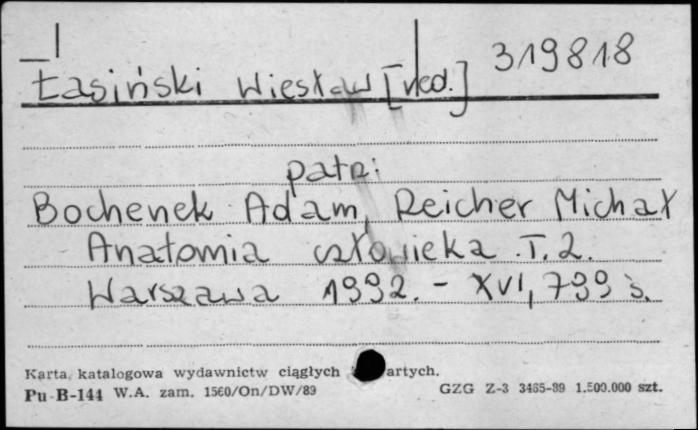 319818
Łasiński Wiesław [red.]
patrz:
Bochenek Adam, Reicher Michał
Anatomia człowieka. T. 2.
Warszawa 1992. - XVI, 799 s.
Karta katalogowa wydawnictw ciągłych artych.
Pu-B-144 W.A. zam. 1560/On/DW/89 GZG Z-3 3465-89 1.500.000 szt.